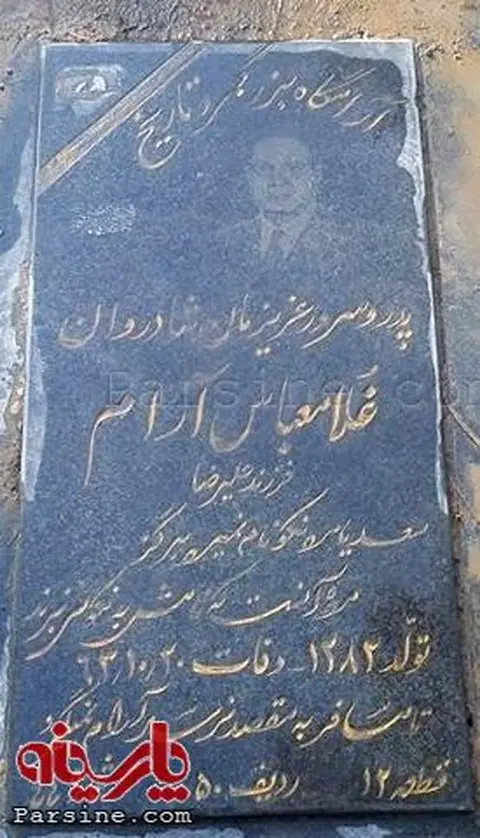 آرامگاه بزرگمرد تاریخ
پدر و سرور عزیزمان شادروان
غلامعباس آرام
فرزند علیرضا
سعدیا مرد نکونام نمیرد هرگز
مرده آنست که نامش به نکوئی نبرند
تولد ۱۲۸۲ - وفات ۶۳/۱۰/۲۰
تا مسافر به مقصد نرسد آرام نگیرد
قطعه ۱۲ ردیف ۵۰
پارسینه
Parsine.com